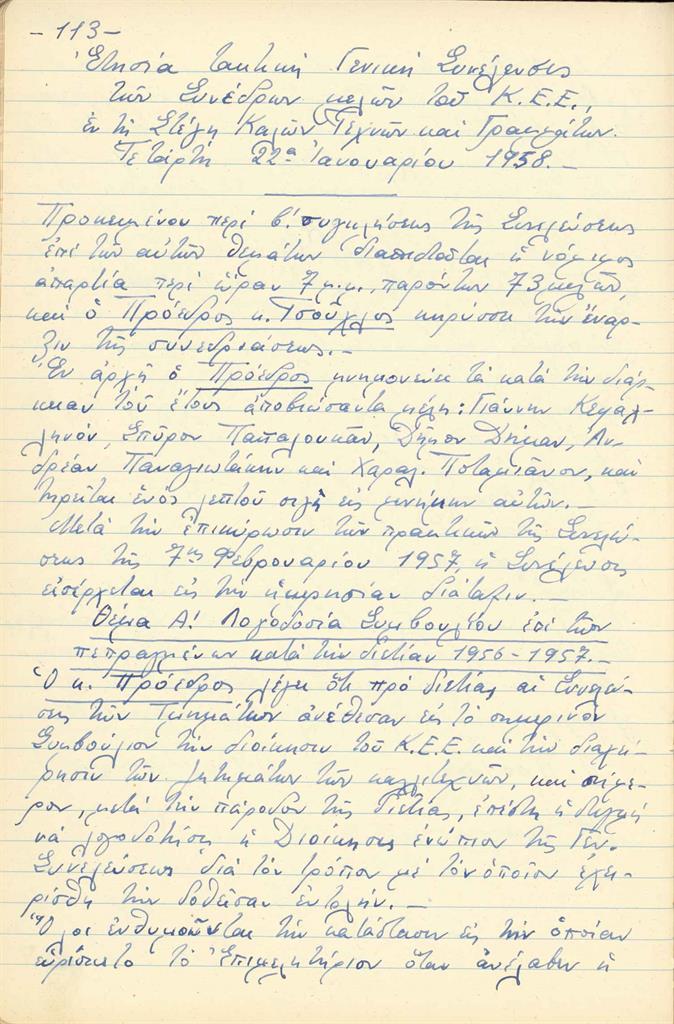 -113-
Ἐτησία τακτική Γενική Συνέλευσις
τῶν Συνέδρων μελῶν τοῦ Κ.Ε.Ε.,
ἐν τῇ Στέγῃ Καλῶν Τεχνῶν καί Γραμμάτων.
Τετάρτη 22α Ἰανουαρίου 1958.-
Προκειμένου περί β'. συγκλήσεως τῆς Συνελεύσεως
ἐπί τῶν αὐτῶν θεμάτων διαπιστοῦται ἡ νόμιμος
ἀπαρτία περί ὥραν 7 μ.μ., παρόντων 73 μελῶν,
καί ὁ Πρόεδρος κ. Τσοῦχλος κηρύσσει τήν ἔναρ-
ξιν τῆς συνεδριάσεως.-
Ἐν ἀρχῇ ὁ Πρόεδρος μνημονεύει τά κατά τήν διάρ-
κειαν τοῦ ἔτους ἀποβιώσαντα μέλη: Γιάννην Κεφαλ-
ληνόν, Σπῦρον Παπαλουκᾶν, Δῆμον Δήμαν, Ἀν-
δρέαν Παναγιωτάκην καί Χαραλ. Ποταμιᾶνον, καί
τηρεῖται ἑνός λεπτοῦ σιγή εἰς μνήμην αὐτῶν.-
Μετά τήν ἐπικύρωσιν τῶν πρακτικῶν τῆς Συνελεύ-
σεως τῆς 7ης Φεβρουαρίου 1957, ἡ Συνέλευσις
εἰσέρχεται εἰς τήν ἡμερησίαν διάταξιν.-
Θέμα Α! Λογοδοσία Συμβουλίου ἐπί τῶν
πεπραγμένων κατά τήν διετίαν 1956-1957.-
Ὁ κ. Πρόεδρος λέγει ὅτι πρό διετίας αἱ Συνελεύ-
σεις τῶν Τμημάτων ἀνέθεσαν εἰς τό σημερινόν
Συμβούλιον τήν διοίκησιν τοῦ Κ.Ε.Ε. καί τήν διαχεί-
ρησιν τῶν ζητημάτων τῶν καλλιτεχνῶν, καί σήμε-
ρον, μετά τήν πάροδον τῆς διετίας, ἐπέστη ἡ στιγμή
νά λογοδοτήσῃ ἡ Διοίκησις ἐνώπιον τῆς Γεν.
Συνελεύσεως διά τόν τρόπον μέ τόν ὁποῖον ἐχει-
ρίσθη τήν δοθεῖσαν ἐντολήν.-
Ὅλοι ἐνθυμοῦνται τήν κατάστασιν εἰς τήν ὁποίαν
εὑρίσκετο τό Ἐπιμελητήριον ὅταν ἀνέλαβεν ἡ